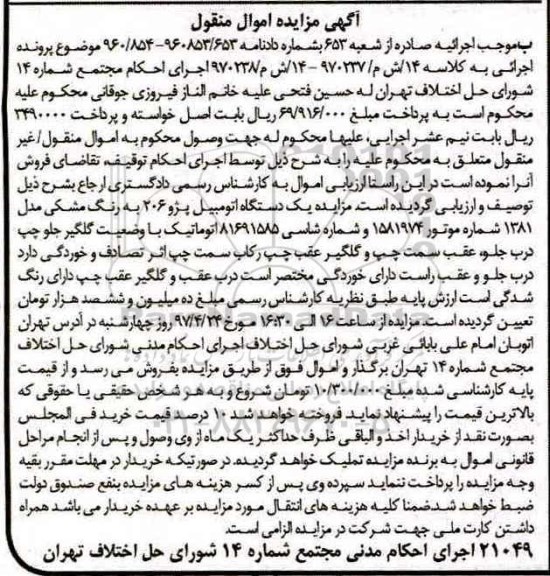 آگهی مزایده اموال منقول
بموجب اجرائیه صادره از شعبه ۶۵۳ بشماره دادنامه ۹۶۰۸۵۳/۶۵۳-۹۶۰/۸۵۴ موضوع پرونده
اجرائی به کلاسه ۱۴/ش م/۹۷۰۲۳۷ - ۱۴/ش م/۹۷۰۲۳۸ اجرای احکام مجتمع شماره ۱۴
شورای حل اختلاف تهران له حسین فتحی علیه خانم الناز فیروزی جوقانی محکوم علیه
محکوم است به پرداخت مبلغ ۶۹/۹۱۶/۰۰۰ ریال بابت اصل خواسته و پرداخت ۳۴۹۰۰۰۰
ریال بابت نیم عشر اجرایی، علیها محکوم له جهت وصول محکوم به اموال منقول/غیر
منقول متعلق به محکوم علیه را به شرح ذیل توسط اجرای احکام توقیف، تقاضای فروش
آنرا نموده است در این راستا ارزیابی اموال به کارشناس رسمی دادگستری ارجاع بشرح ذیل
توصیف و ارزیابی گردیده است. مزایده یک دستگاه اتومبیل پژو ۲۰۶ به رنگ مشکی مدل
۱۳۸۱ شماره موتور ۱۵۸۱۹۷۴ و شماره شاسی ۸۱۶۹۱۵۸۵ اتوماتیک با وضعیت گلگیر جلو چپ
درب جلو، عقب سمت چپ و گلگیر عقب چپ رکاب سمت چپ اثر تصادف و خوردگی دارد
درب جلو و عقب راست دارای خوردگی مختصر است درب عقب و گلگیر عقب چپ دارای رنگ
شدگی است ارزش پایه طبق نظریه کارشناس رسمی مبلغ ده میلیون و ششصد هزار تومان
تعیین گردیده است. مزایده از ساعت ۱۶ الی ۱۶:۳۰ مورخ ۹۷/۴/۲۴ روز چهارشنبه در آدرس تهران
اتوبان امام علی بابائی غربی شورای حل اختلاف اجرای احکام مدنی شورای حل اختلاف
مجتمع شماره ۱۴ تهران برگذار و اموال فوق از طریق مزایده بفروش می رسد و از قیمت
پایه کارشناسی شده مبلغ ۱۰/۳۰۰/۰۰۰ تومان شروع و به هر شخص حقیقی یا حقوقی که
بالاترین قیمت را پیشنهاد نماید فروخته خواهد شد ۱۰ درصد قیمت خرید فی المجلس
بصورت نقد از خریدار اخذ و الباقی ظرف حداکثر یک ماه از وی وصول و پس از انجام مراحل
قانونی اموال به برنده مزایده تملیک خواهد گردیده. در صورتیکه خریدار در مهلت مقرر بقیه
وجه مزایده را پرداخت ننماید سپرده وی پس از کسر هزینه های مزایده بنفع صندوق دولت
ضبط خواهد شد ضمنا کلیه هزینه های انتقال مورد مزایده بر عهده خریدار می باشد همراه
داشتن کارت ملی جهت شرکت در مزایده الزامی است.
۲۱۰۴۹ اجرای احکام مدنی مجتمع شماره ۱۴ شورای حل اختلاف تهران